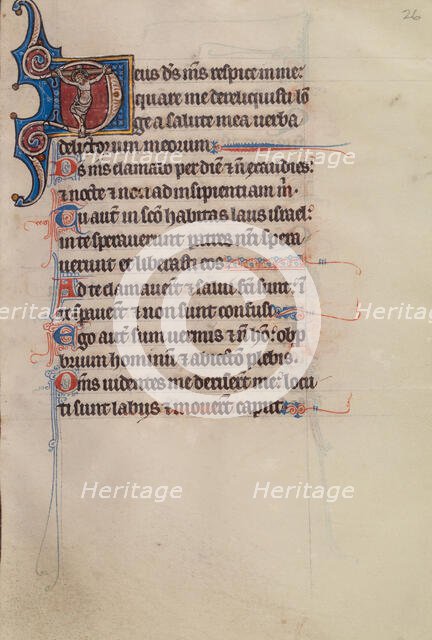 26
Deus d̄s m̄s respice in me:
quare me dereliquisti lō
ge a salute mea verba
delictorum meorum
D̄s m̄s clamabo per diē & n̄ exaudies:
& nocte & non ad insipientiam m̄.
Tu aut̄ in scō habitas laus israel:
In te speraverunt patres nr̄i spera
verunt et liberasti eos
Ad te clamaver̄t & salui fc̄i sunt: ī
te speraver̄t & non sunt confusi
Ego aut̄ sum vermis & n̄ hō: obp
brium hominū & abiectio plebis.
Om̄s videntes me deriser̄t me: locu
ti sunt labijs & mover̄t caput
Heritage
Heritage
Heritage
Heritage
Heritage
Heritage